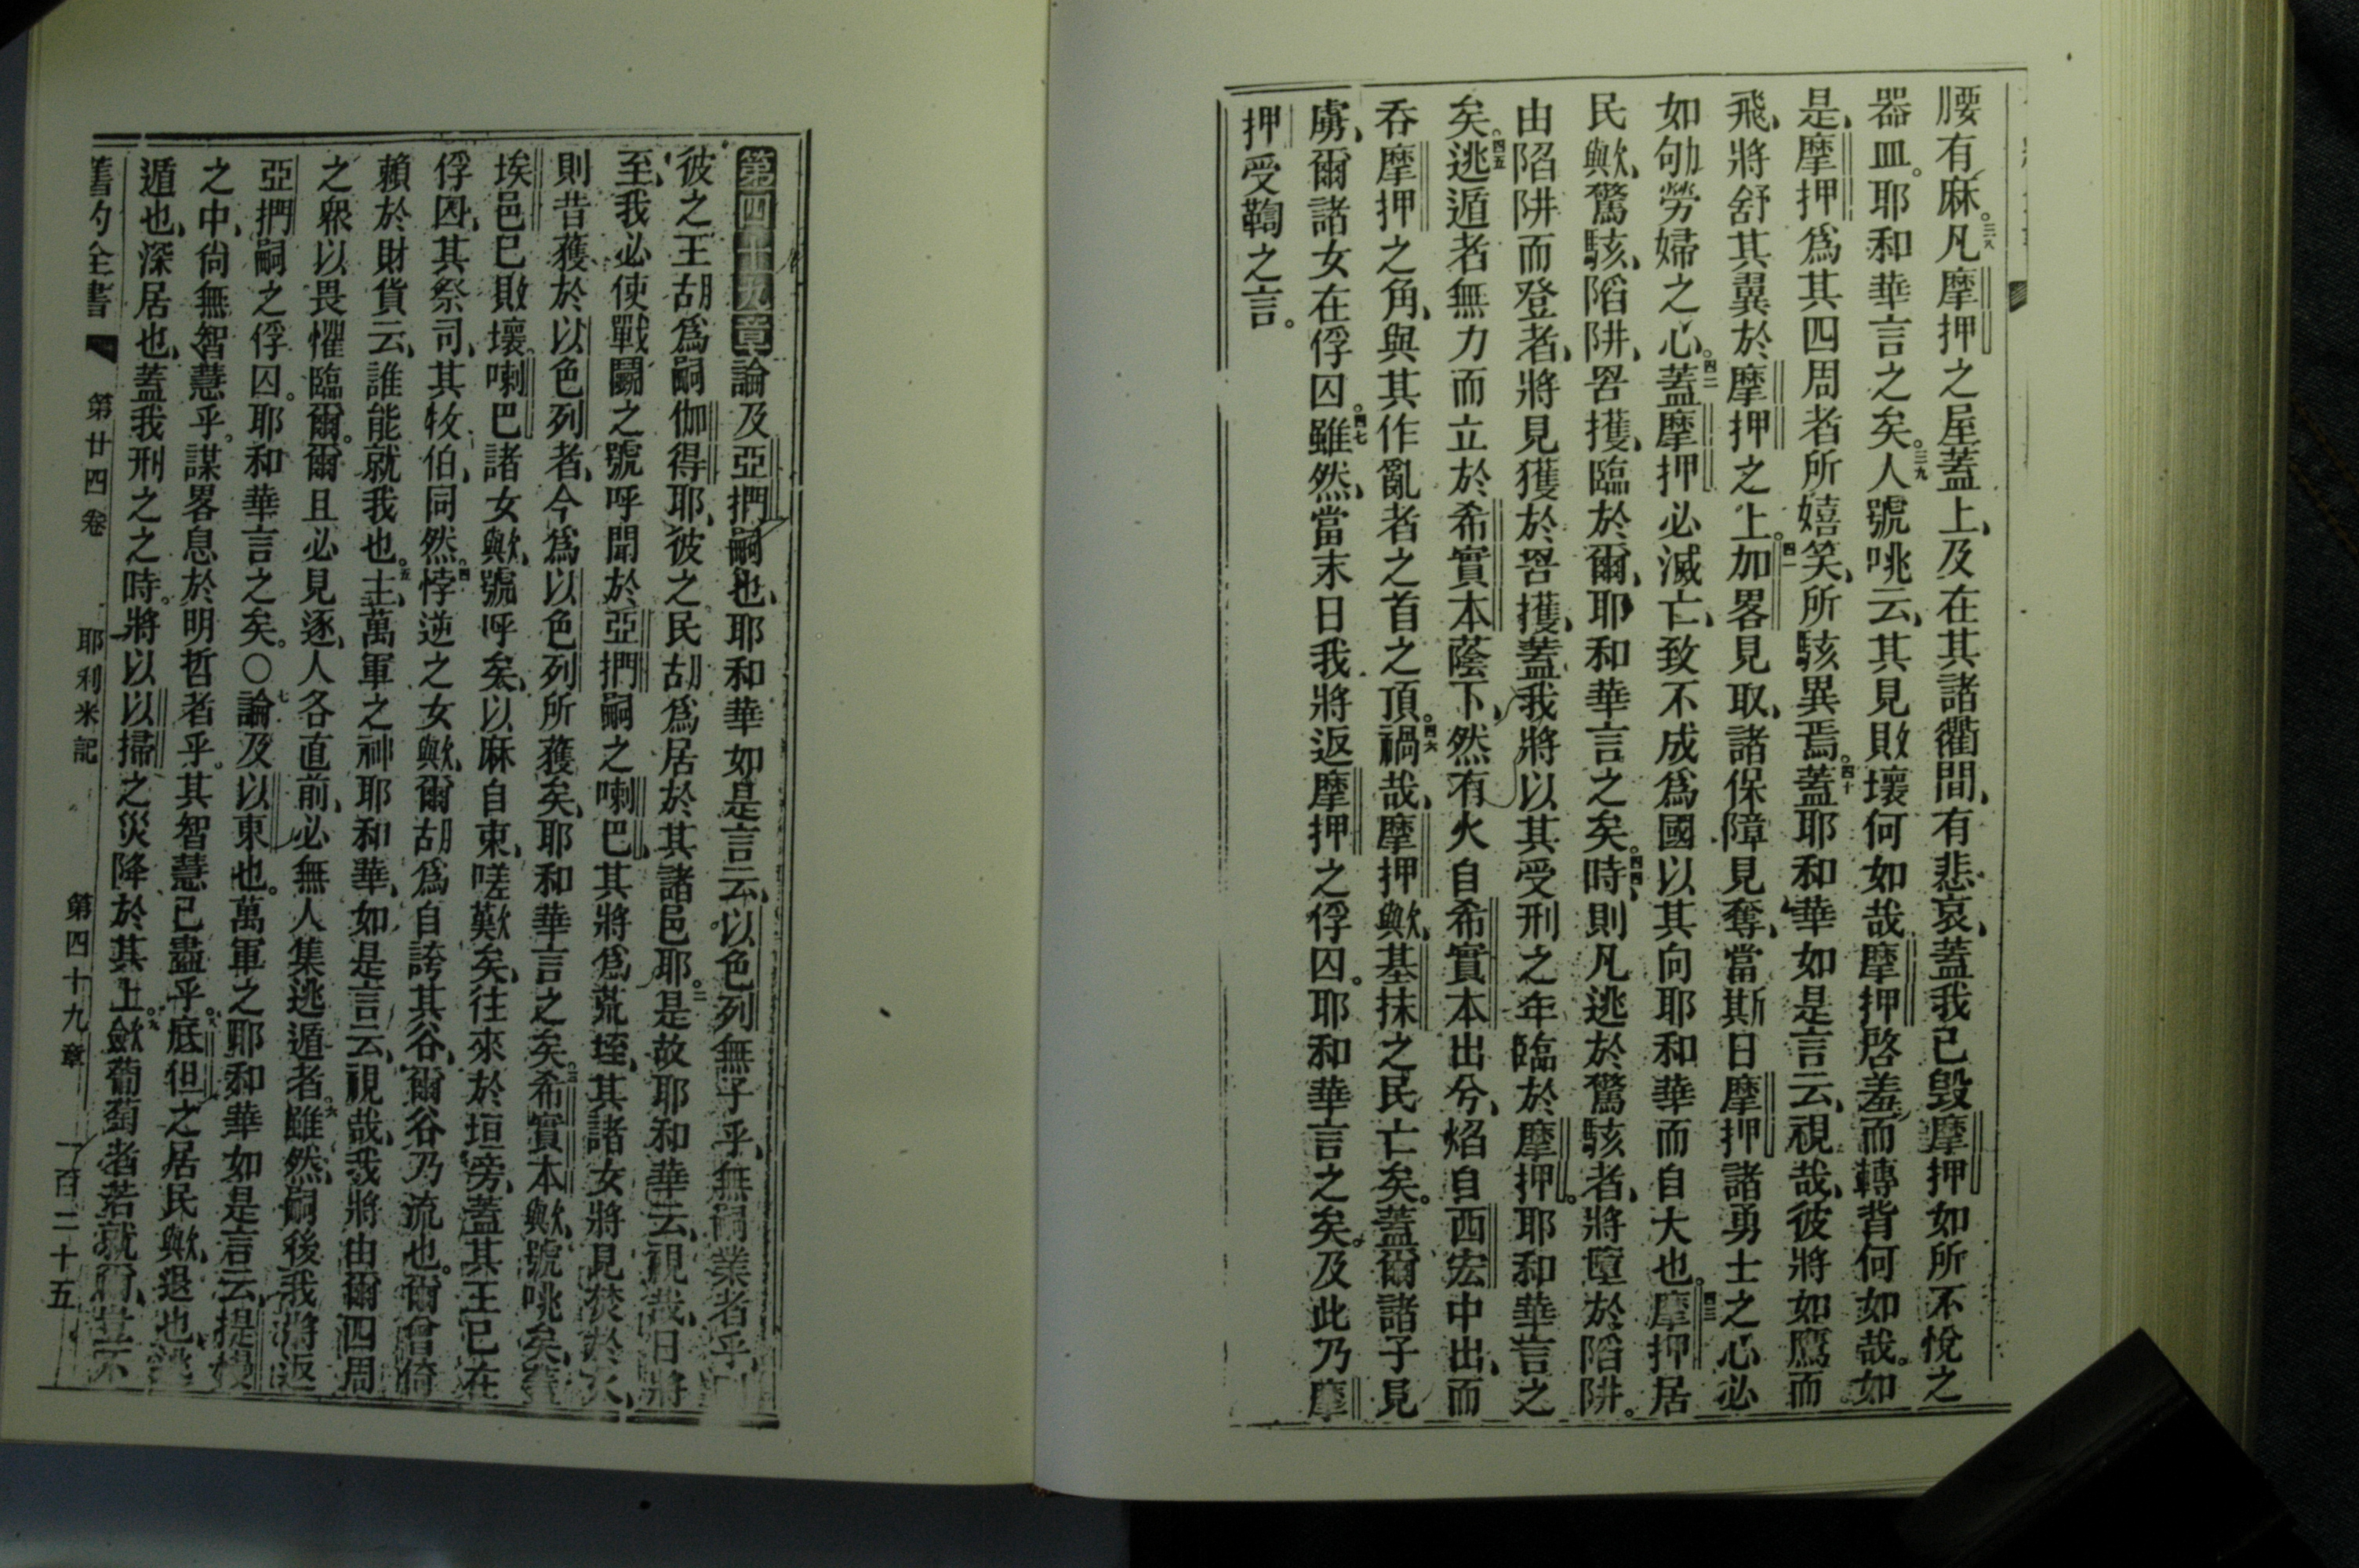 腰有麻。三八凡摩押之屋蓋上、及在其諸衢間、有悲哀、蓋我已毁摩押如所不悅之
器皿。耶和華言之矣。三九人號咷云、其見敗壞何如哉、摩押啓羞而轉背何如哉。如
是、摩押爲其四周者所嬉笑、所駭異焉。四十蓋耶和華如是言云、視哉、彼將如鷹而
飛、將舒其翼於摩押之上。四一加畧見取、諸保障見奪、當斯日摩押諸勇士之心必
如劬勞婦之心。四二蓋摩押必滅亡、致不成爲國以其向耶和華而自大也。四三摩押居
民歟、驚駭、陷阱、罟擭、臨於爾、耶和華言之矣。四四時、則凡逃於驚駭者、將墮於陷阱。
由陷阱而登者、將見獲於罟擭、蓋我將以其受刑之年臨於摩押。耶和華言之
矣。四五逃遁者無力而立於希實本蔭下、然有火自希實本出兮、焰自西宏中出、而
吞摩押之角、與其作亂者之首之頂。四六禍哉、摩押歟、基抹之民亡矣。蓋爾諸子見
虜、爾諸女在俘囚。四七雖然、當末日我將返摩押之俘囚。耶和華言之矣。及此乃摩
押受鞫之言。
第四十九章論及亞捫嗣也、耶和華如是言云、以色列無子乎、無嗣業者乎、
彼之王胡爲嗣伽得耶、彼之民胡爲居於其諸邑耶。二是故耶和華云、視哉、日將
至、我必使戰鬬之號呼聞於亞捫嗣之喇巴、其將爲荒垤、其諸女將見焚於火、
則昔獲於以色列者、今爲以色列所獲矣、耶和華言之矣。三希實本歟、號咷矣、蓋
埃邑已敗壞。喇巴諸女歟、號呼矣、以麻自束、嗟歎矣、往來於垣旁、蓋其王已在
俘囚、其祭司、其牧伯、同然。四悖逆之女歟、爾胡爲自誇其谷、爾谷乃流也。爾曾倚
賴於財貨云、誰能就我也。五主、萬軍之神耶和華、如是言云、視哉、我將由爾四周
之衆以畏懼臨爾。爾且必見逐、人各直前、必無人集逃遁者。六雖然、嗣後我將返
亞捫嗣之俘囚。耶和華言之矣。〇七論及以東也。萬軍之耶和華如是言云、提幔
之中、尙無智慧乎。謀畧息於明哲者乎。其智慧已盡乎。八底但之居民歟、退也、逃
遁也、深居也、蓋我刑之之時。將以以掃之災降於其上。九斂葡萄者若就爾、豈不
舊約全書 第廿四卷 耶利米記 第四十九章 一百二十五